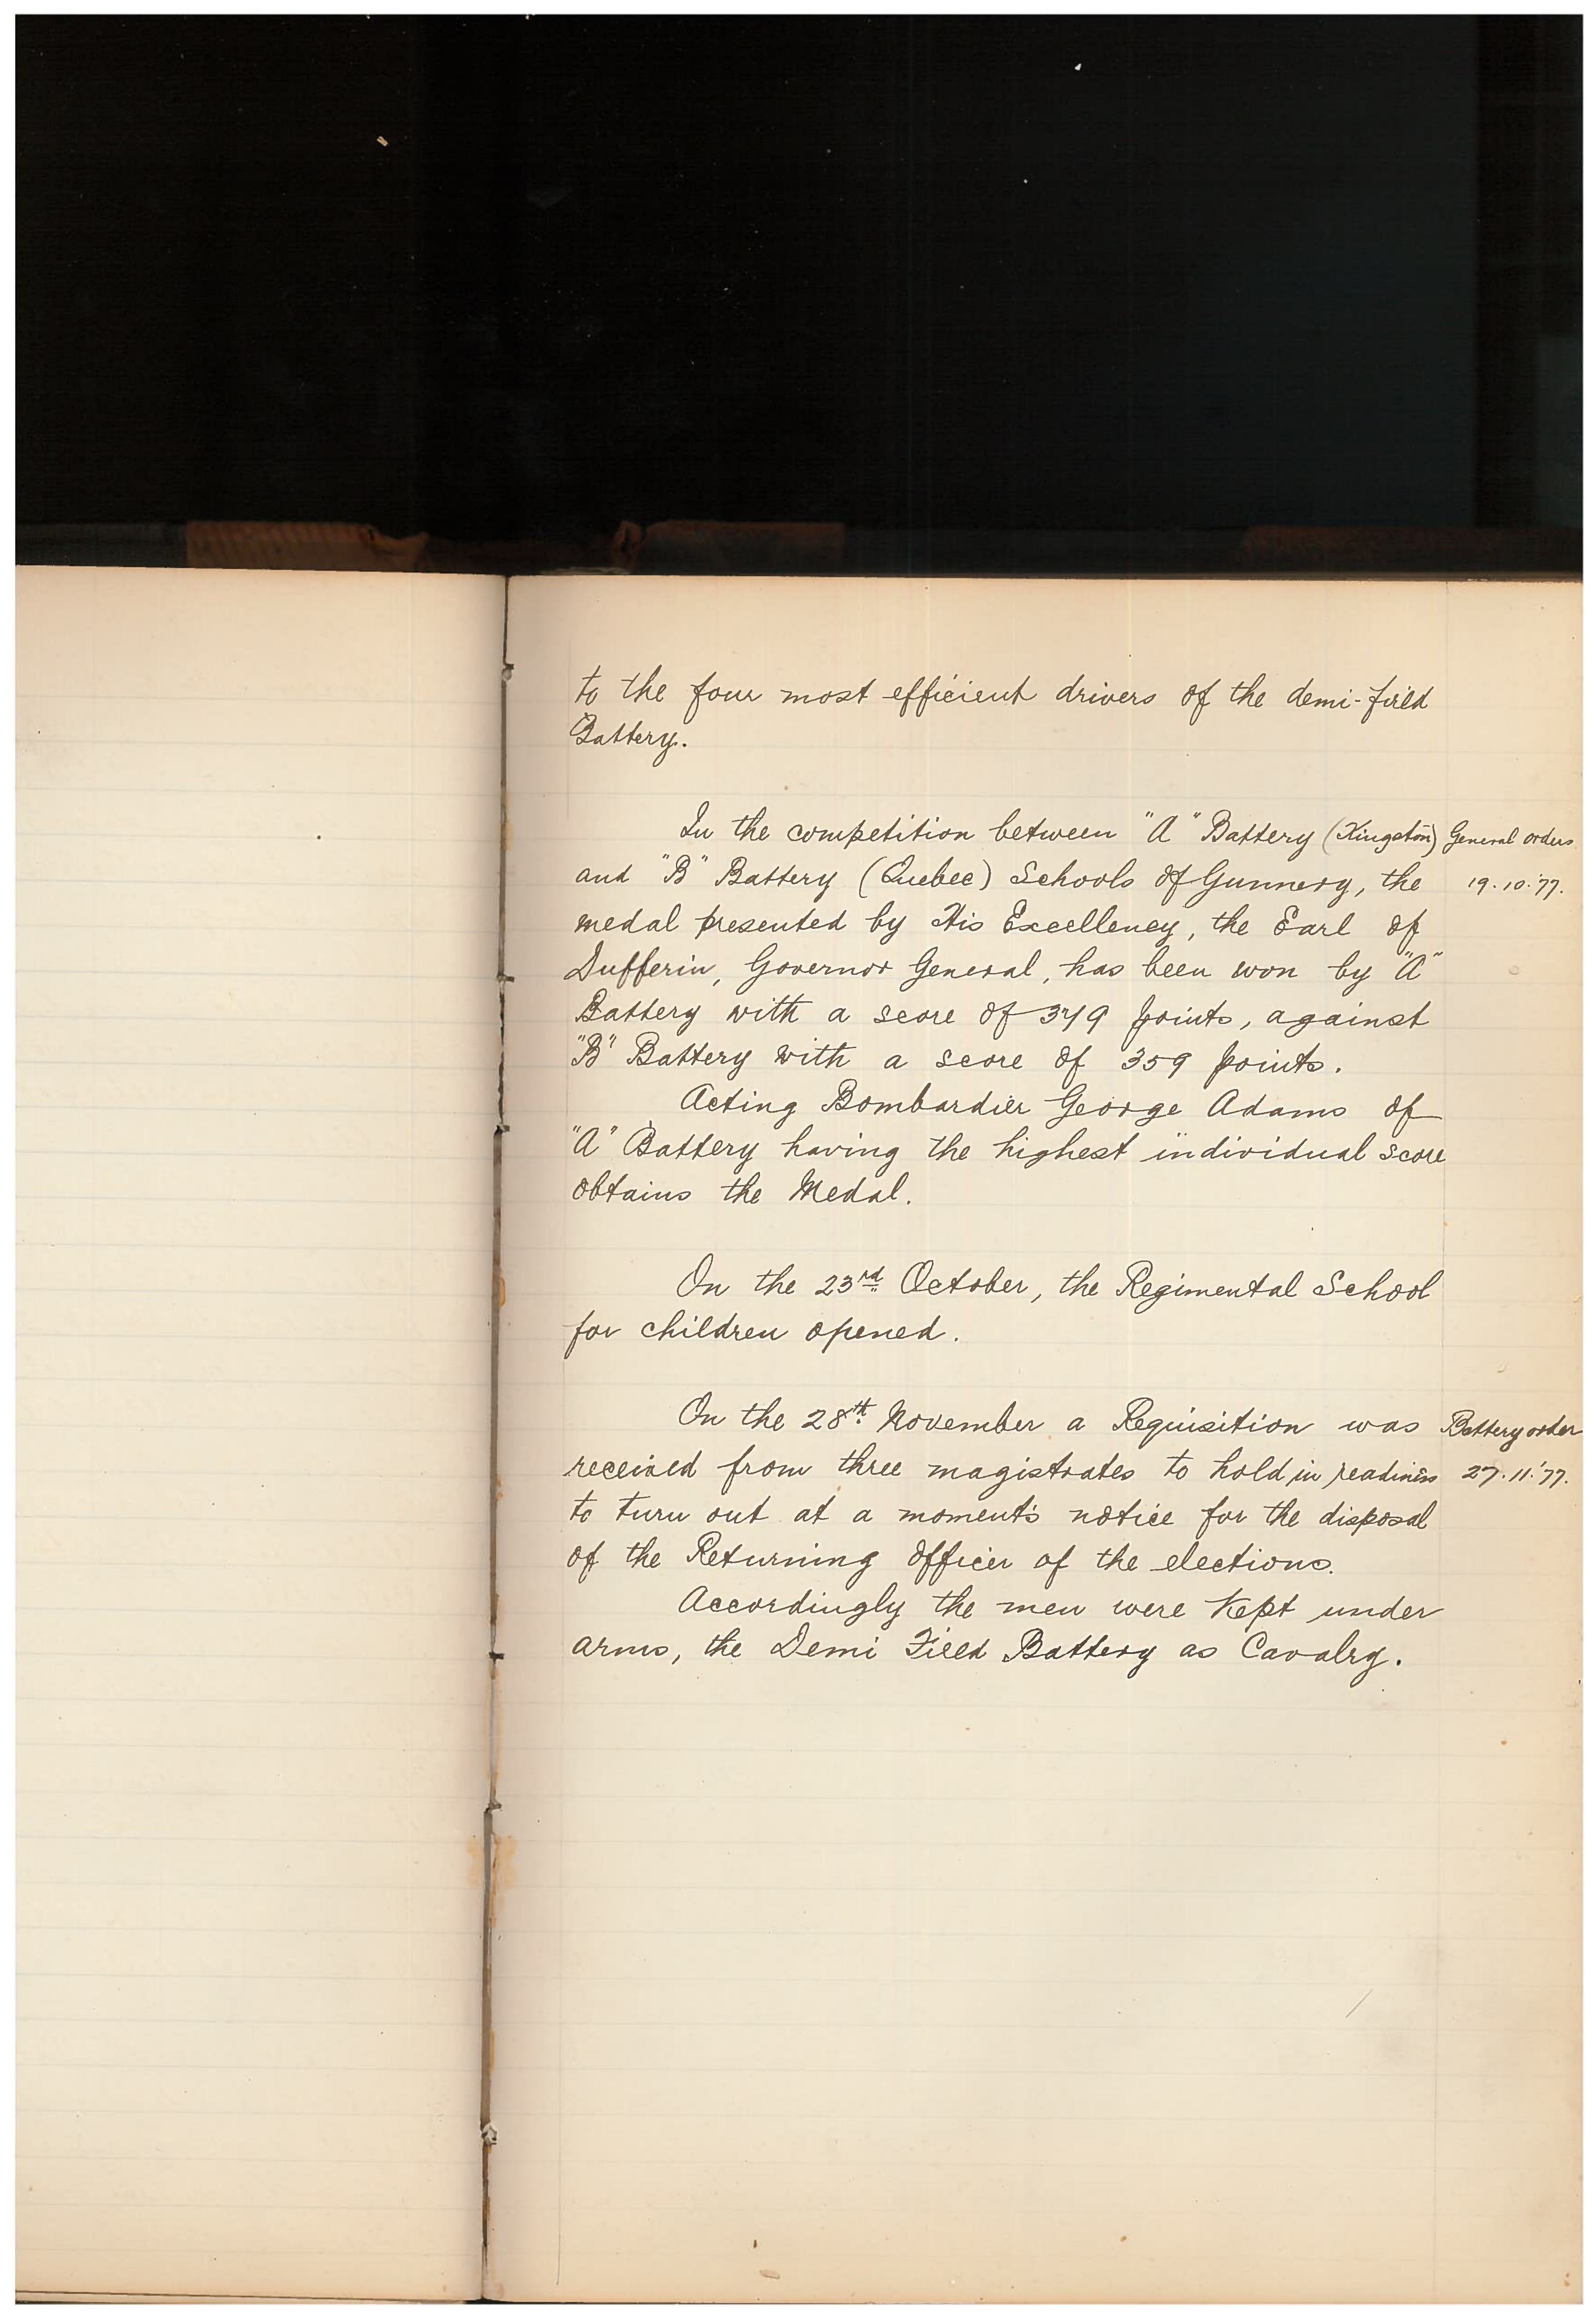 to the four most efficient drivers of the demi-field
Battery.
In the competition between "A" Battery (Kingston) General orders
and "B" Battery (Quebec) Schools of Gunnery, the 19.10.'77.
medal presented by His Excellency, the Earl of
Dufferin, Governor General, has been won by "A"
Battery with a score of 379 points, against
"B" Battery with a score of 359 points.
Acting Bombardier George Adams of
"A" Battery having the highest individual score
obtains the Medal.
On the 23rd October, the Regimental School
for children opened.
On the 28th November a Requisition was Battery order
received from three magistrates to hold in readiness 27.11.'77.
to turn out at a moment's notice for the disposal
of the Returning Officer of the elections.
Accordingly the men were Kept under
arms, the Demi Field Battery as Cavalry.